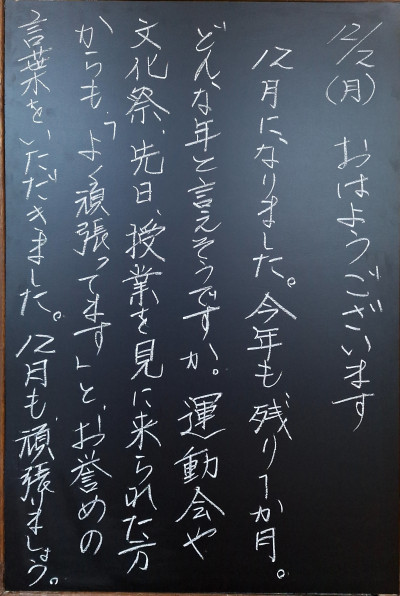 12/2(月) おはようございます
12月になりました。今年も残り1か月。
どんな年と言えそうですか。運動会や
文化祭、先日、授業を見に来られた方
からも、「よく頑張ってます」と、お誉めの
言葉をいただきました。12月も頑張りましょう。